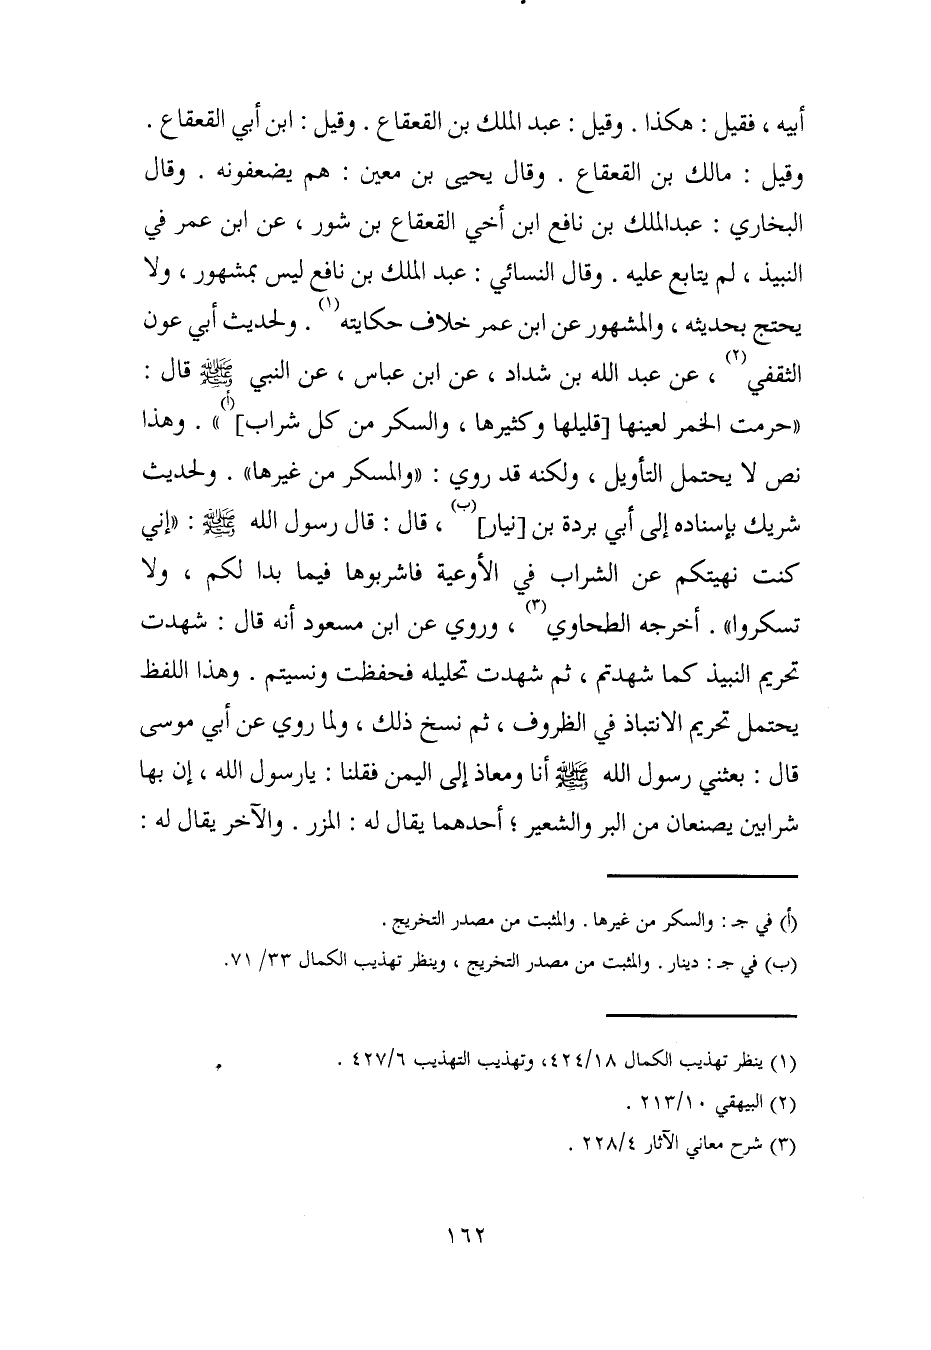 أبيه ، فقيل : هكذا . وقيل : عبد الملك بن القعقاع . وقيل : ابن أبي القعقاع .
وقيل : مالك بن القعقاع . وقال يحيى بن معين : هم يضعفونه . وقال
البخاري : عبدالملك بن نافع ابن أخي القعقاع بن شور ، عن ابن عمر في
النبيذ ، لم يتابع عليه . وقال النسائي : عبد الملك بن نافع ليس بمشهور ، ولا
يحتج بحديثه ، والمشهور عن ابن عمر خلاف حكايته(١) . ولحديث أبي عون
الثقفي(٢) ، عن عبد الله بن شداد ، عن ابن عباس ، عن النبي ﷺ قال :
«حرمت الخمر لعينها [قليلها وكثيرها ، والسكر من كل شراب](أ)» . وهذا
نص لا يحتمل التأويل ، ولكنه قد روي : «والمسكر من غيرها» . ولحديث
شريك بإسناده إلى أبي بردة بن [نيار](ب) ، قال : قال رسول الله ﷺ : «إني
كنت نهيتكم عن الشراب في الأوعية فاشربوها فيما بدا لكم ، ولا
تسكروا» . أخرجه الطحاوي(٣) ، وروي عن ابن مسعود أنه قال : شهدت
تحريم النبيذ كما شهدتم ، ثم شهدت تحليله فحفظت ونسيتم . وهذا اللفظ
يحتمل تحريم الانتباذ في الظروف ، ثم نسخ ذلك ، ولما روي عن أبي موسى
قال : بعثني رسول الله ﷺ أنا ومعاذ إلى اليمن فقلنا : يارسول الله ، إن بها
شرابين يصنعان من البر والشعير ؛ أحدهما يقال له : المزر . والآخر يقال له :
(أ) في جـ : والسكر من غيرها . والمثبت من مصدر التخريج .
(ب) في جـ : دينار . والمثبت من مصدر التخريج ، وينظر تهذيب الكمال ٣٣/ ٧١.
(١) ينظر تهذيب الكمال ٤٢٤/١٨، وتهذيب التهذيب ٤٢٧/٦ .
(٢) البيهقي ٢١٣/١٠ .
(٣) شرح معاني الآثار ٢٢٨/٤ .
١٦٢